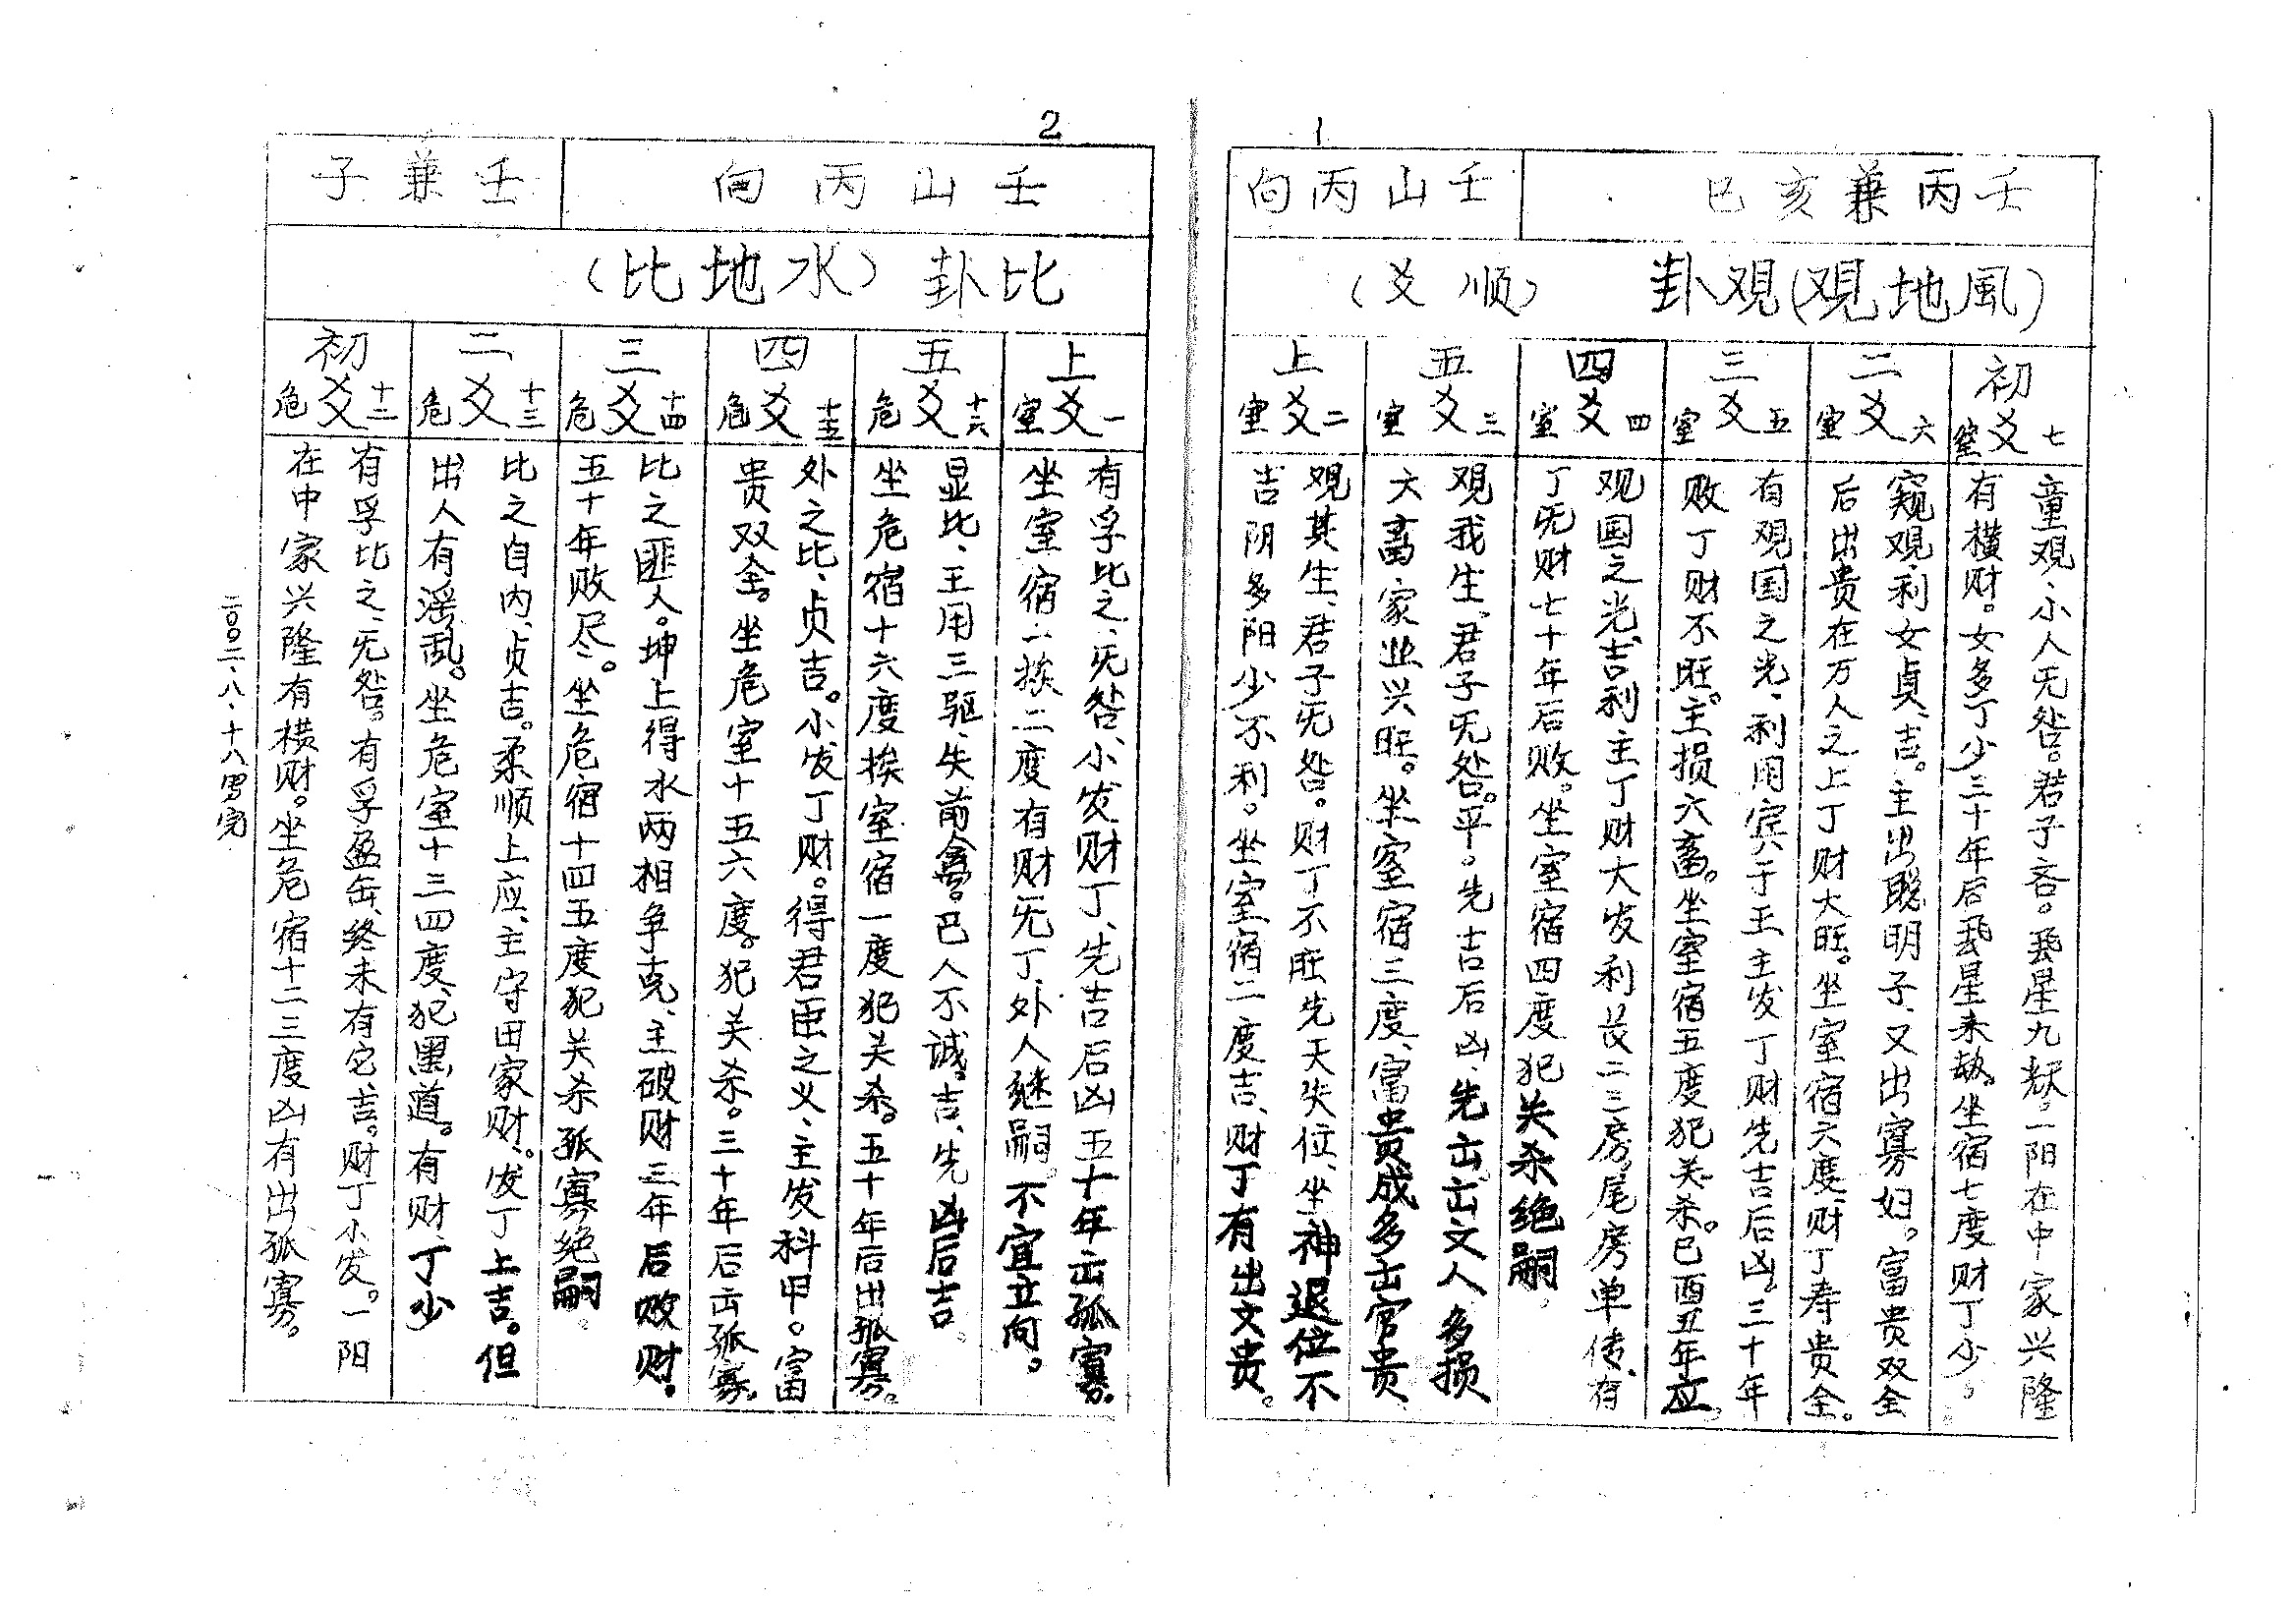 1
壬丙兼亥巳
壬山丙向
（風地观）观卦
（順爻）
初爻 七 室
童观、小人无咎。君子吝。星九狱。一阳在中家兴隆
有横财。女多丁少三十年后星来劫。坐宿七度财丁少。
二爻 六 室
窥观、利女貞、吉。主出聪明子、又出寡妇。富贵双全
后出贵在万人之上丁财大旺。坐室宿六度、财丁寿贵全。
三爻 五 室
有观国之光、利用宾于王主发丁财先吉后凶。三十年
败丁财不旺。主损六畜。坐室宿五度犯关杀。巳酉丑年应。
四爻 四 室
观国之光、吉利主丁财大发利长二三房、尾房单传、有
丁无财七十年后败。坐室宿四度犯关杀绝嗣。
五爻 三 室
观我生、君子无咎。平。先吉后凶、先出出文人多损
六畜家业兴旺。坐室宿三度、富贵成多出官贵、
上爻 二 室
观其生、君子无咎。财丁不旺先天失位、坐神退位不
吉阴多阳少不利。坐室宿二度吉、财丁有出文贵。
2
壬山丙向
壬兼子
比卦（水地比）
上爻 一 室
有孚比之、无咎、小发财丁、先吉后凶五十年出孤寡.
坐室宿一挨二度有财无丁、外人继嗣。不宜立向。
五爻 十六 危
显比、王用三驱、失前禽。巳人不诚。吉、先凶后吉。
坐危宿十六度挨室宿一度犯关杀。五十年后出孤寡。
四爻 十五 危
外之比、贞吉。小发丁财。得君臣之义、主发科甲。富
贵双全。坐危室十五六度。犯关杀。三十年后出孤寡.
三爻 十四 危
比之匪人。坤上得水两相争克、主破财三年后败财.
五十年败尽。坐危宿十四五度犯关杀孤寡绝嗣。
二爻 十三 危
比之自内、贞吉。柔顺上应、主守田家财、。发丁上吉。但
出人有淫乱。坐危室十三四度、犯黑道。有财、丁少
初爻 十二 危
有孚比之、无咎。有孚盈缶、终来有它、吉。财丁小发。一阳
在中家兴隆有横财。坐危宿十二三度凶有出孤寡。
二00二、八、十八罗完